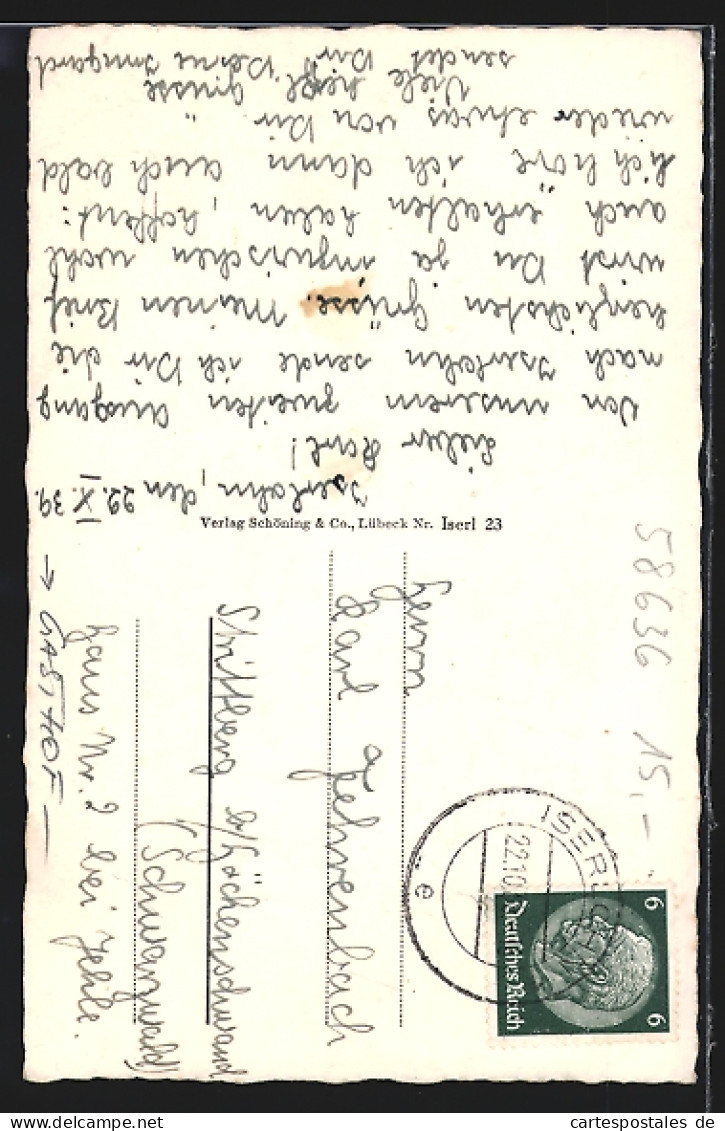 Iserlohn, den 22.X.39.
Lieber Karl!
Von unserem zweiten Ausgang
nach Iserlohn sende ich Dir die
herzlichsten Grüsse. Meinen Brief
wirst Du ja inzwischen wohl
auch erhalten haben, hoffent:
lich höre ich dann auch bald
wieder etwas von Dir.
Viele herzl. Grüsse
sendet Dir Deine Irmgard
Verlag Schöning & Co., Lübeck Nr. Iserl 23
Herrn
Karl
Strittberg b/Höchenschwand
(Schwarzwald)
Haus Nr. 2 bei Jehle.
→ GASTHOF —
58636 15,-
ISERLOHN
22.10.
e
6 Deutsches Reich 6
cartespostales.de